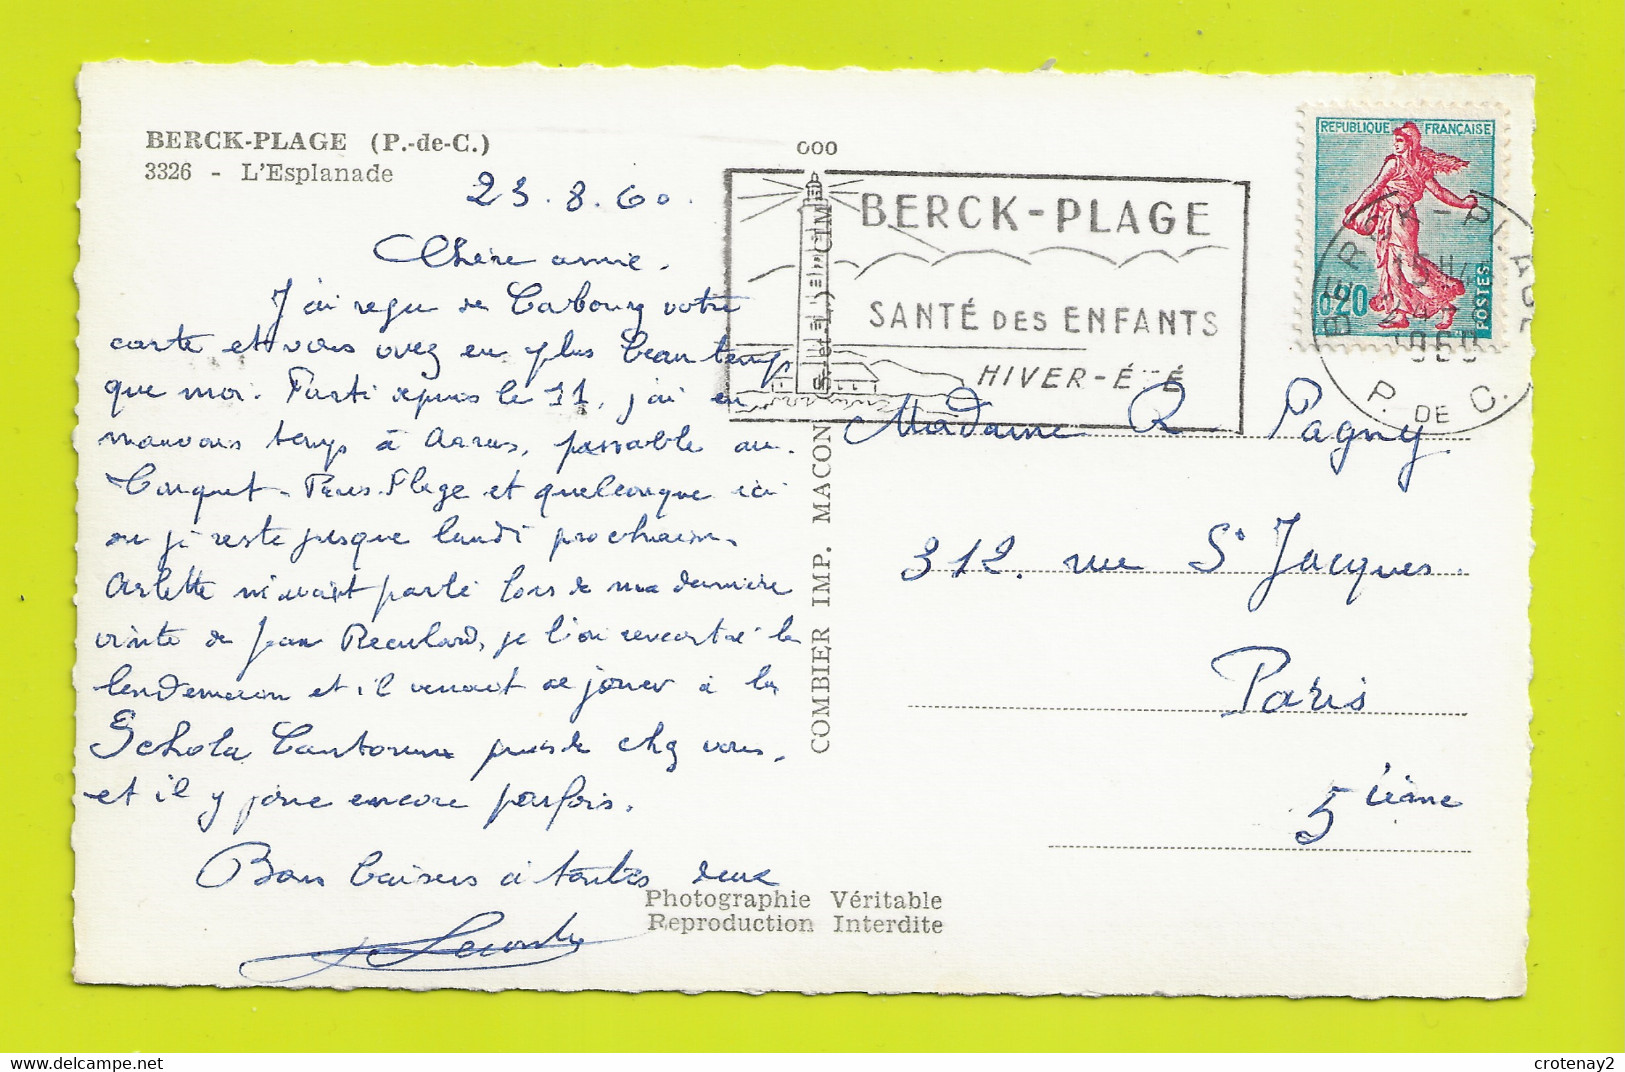 BERCK-PLAGE (P.-de-C.)
3326 - L'Esplanade
23.8.60.
Chère amie.
J'ai reçu de Cabourg votre
carte et vous avez eu plus beau temps
que moi. Parti depuis le 11, j'ai eu
mauvais temps à Arras, passable au
Touquet-Paris-Plage et quelconque ici
où je reste jusque lundi prochain.
Arlette m'avait parlé lors de ma dernière
visite de Jean je l'ai rencontré le
lendemain et il venait de jouer à la
Schola Cantorum près de chez vous,
et il y joue encore parfois.
Bons baisers à toutes deux
COMBIER IMP. MACON (S. et L.) CIM
Photographie Véritable
Reproduction Interdite
000
BERCK-PLAGE
SANTÉ DES ENFANTS
HIVER-É--É
REPUBLIQUE FRANÇAISE
0,20
POSTES
BERCK-PLAGE
1960
P. DE C.
Madame R Pagny
312. rue St Jacques.
Paris
5 ième
crotenay2